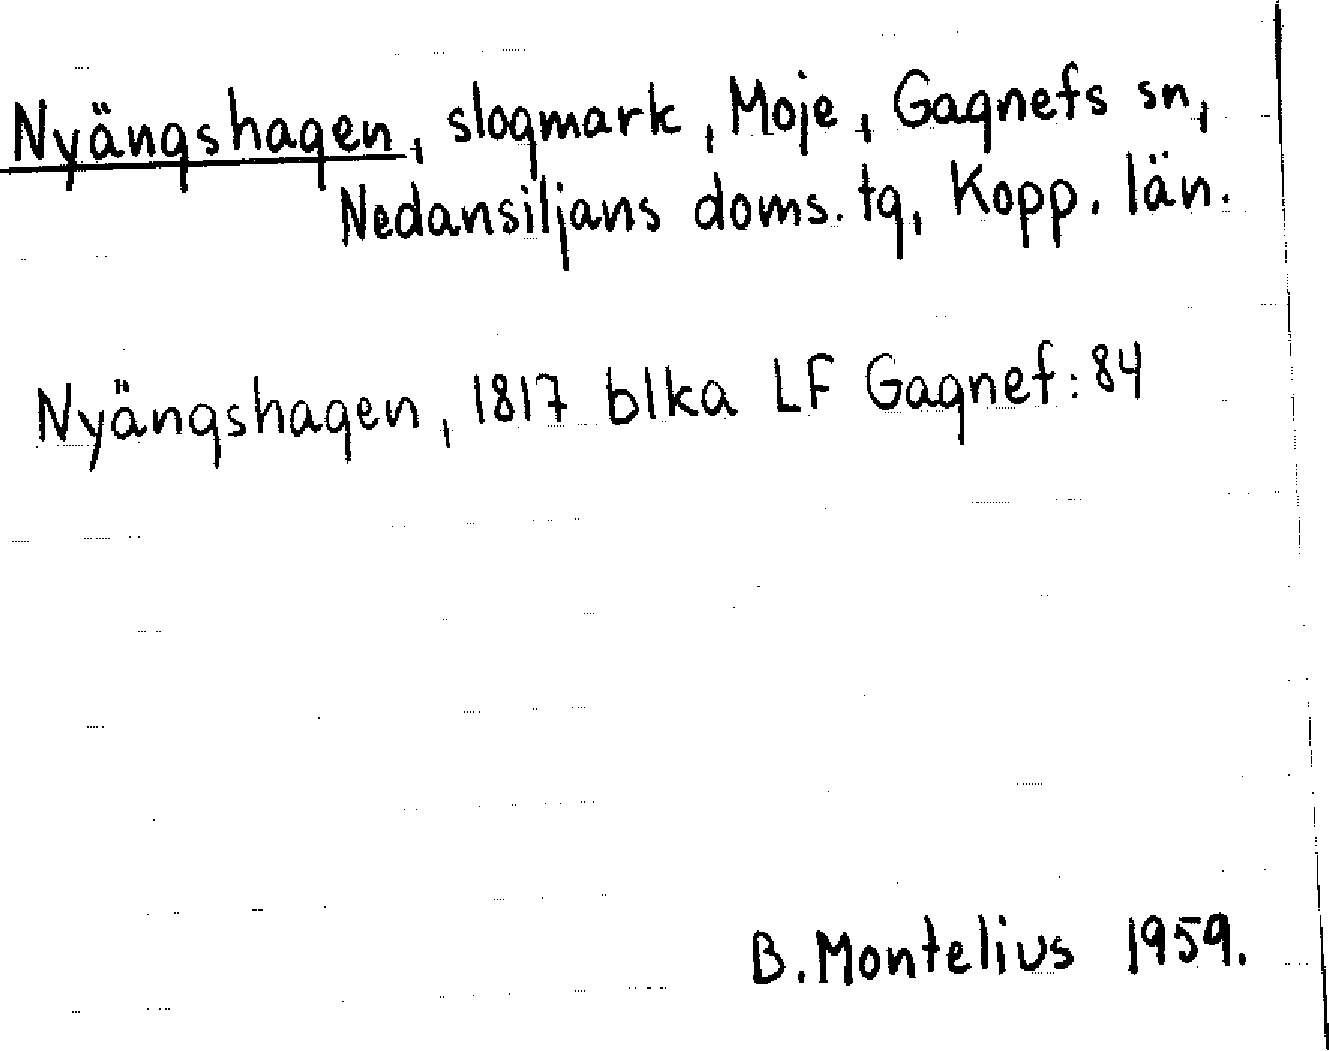 Nyängshagen, slogmark, Moje, Gagnefs sn,
Nedansiljans doms. tg, Kopp. län.
Nyängshagen, 1817 blka LF Gagnef: 84
B. Montelius 1959.